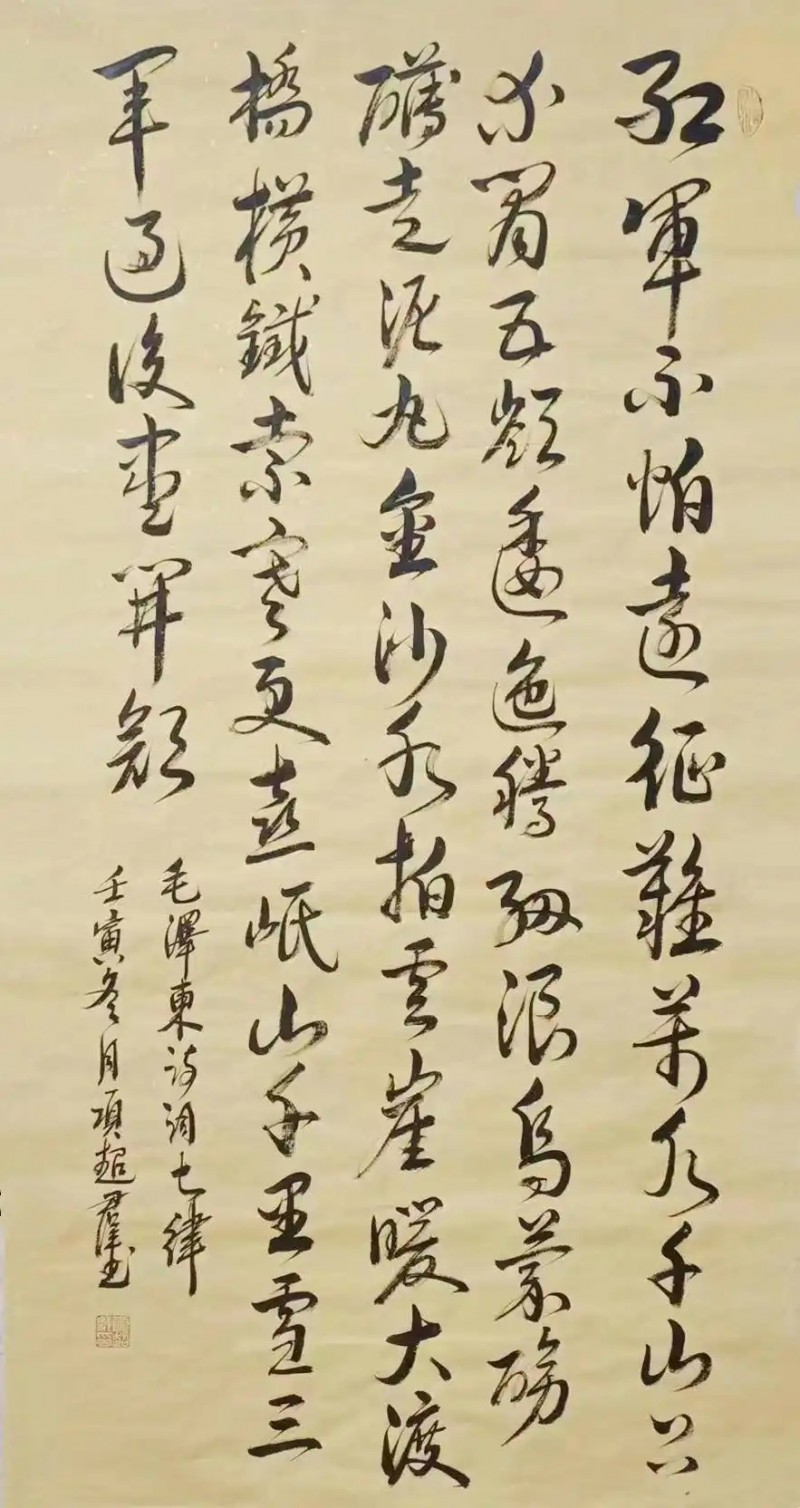 红軍不怕遠征難萬水千山只
等閒五嶺逶迤騰細浪烏蒙磅
礴走泥丸金沙水拍雲崖暖大渡
橋橫鐵索寒更喜岷山千里雪三
軍過後盡開顏
毛澤東詩詞七律
壬寅冬月項超群書